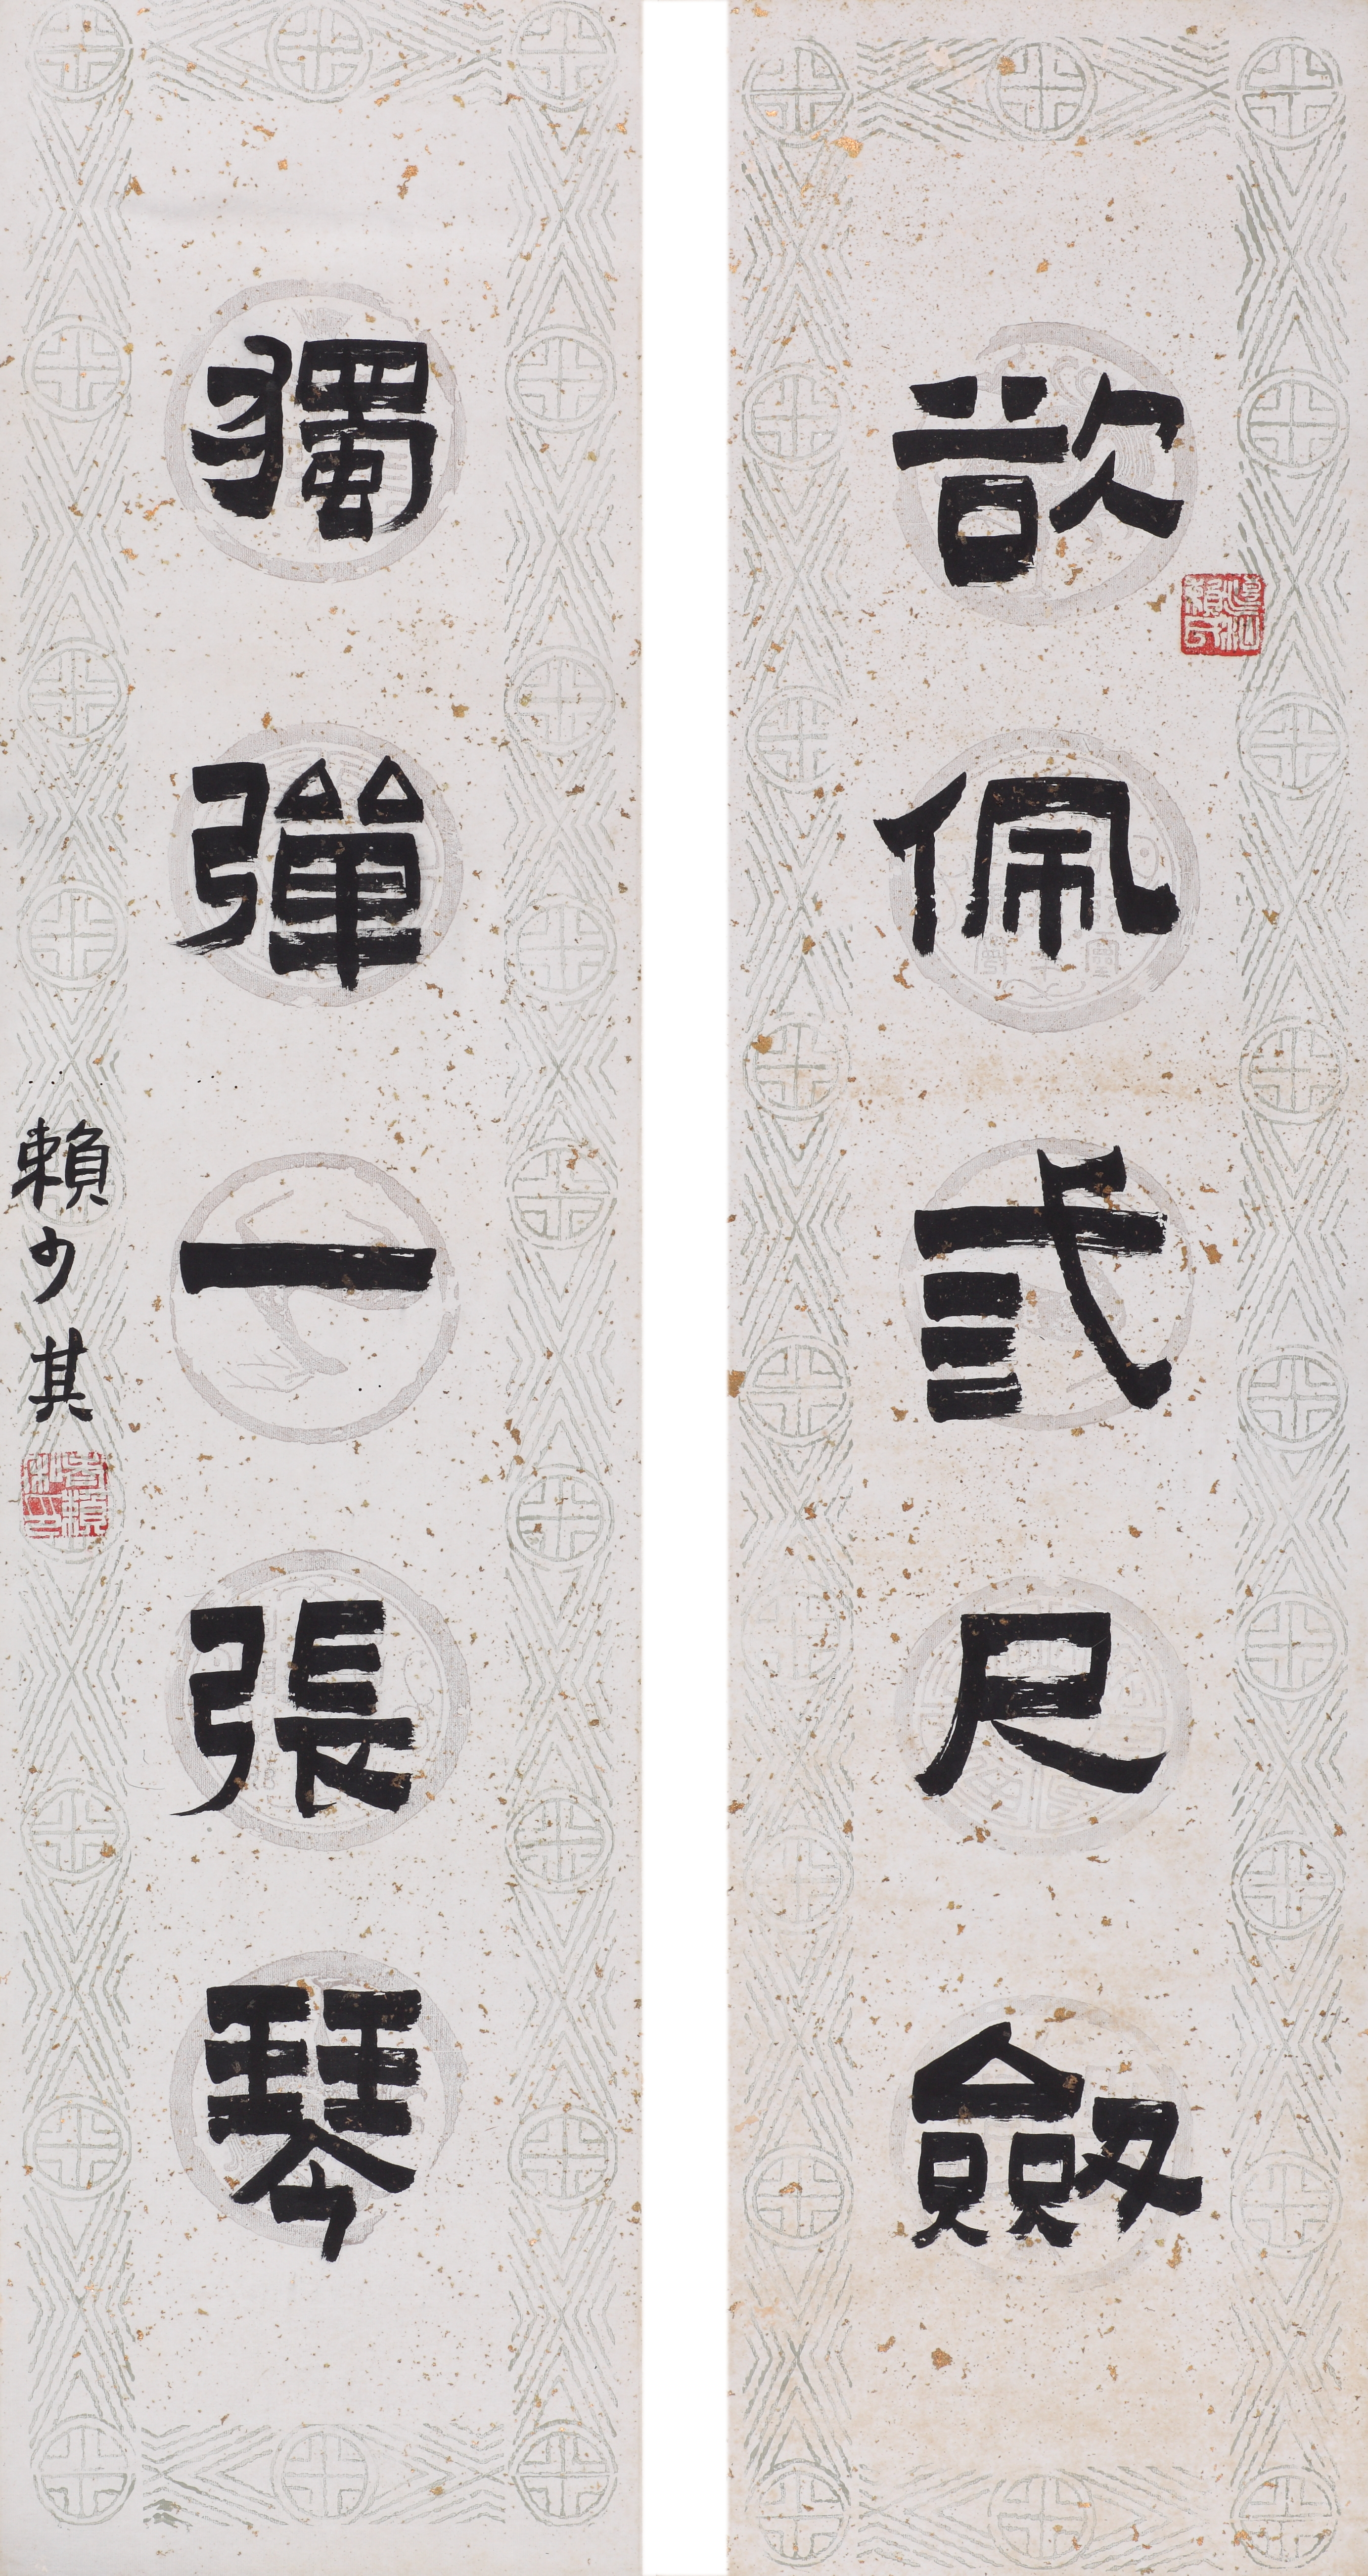 欲佩弎尺劔
獨彈一張琴
賴少其